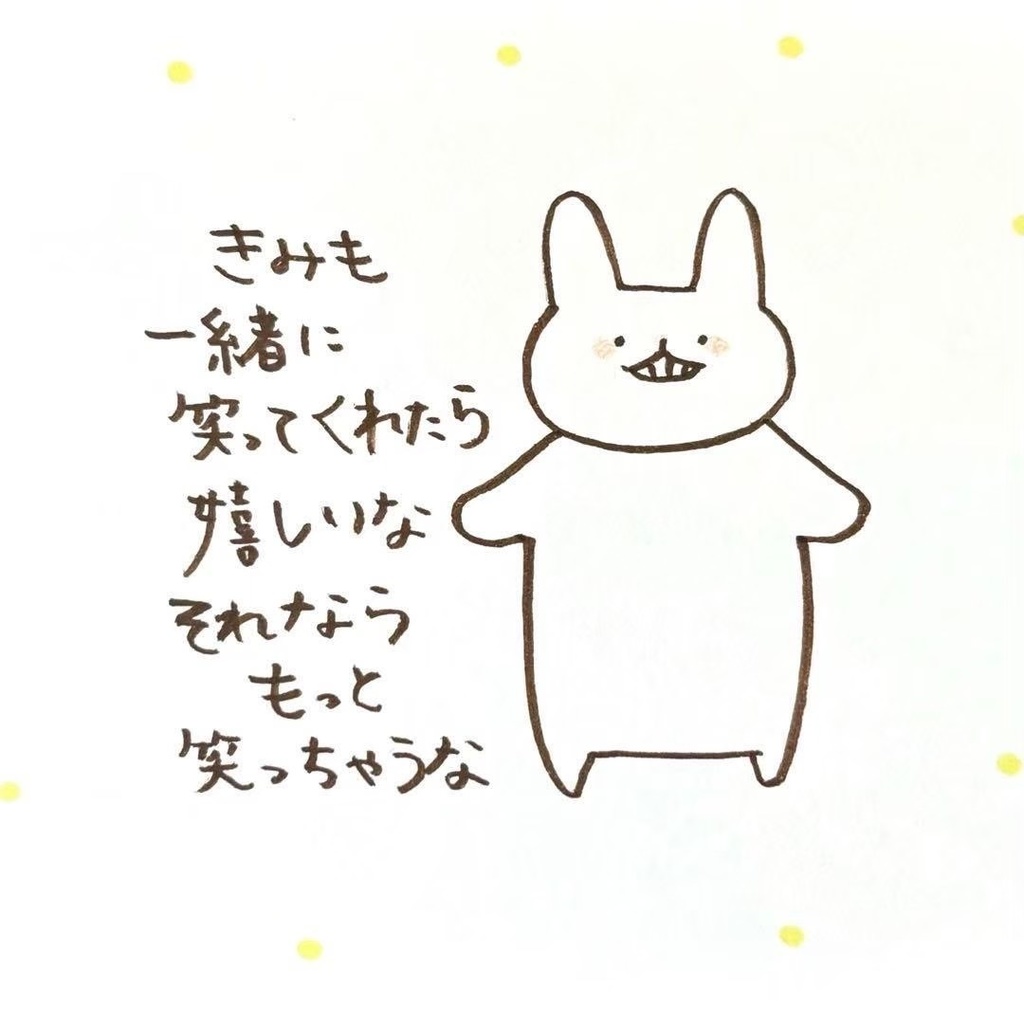 きみも
一緒に
笑ってくれたら
嬉しいな
それなら
もっと
笑っちゃうな